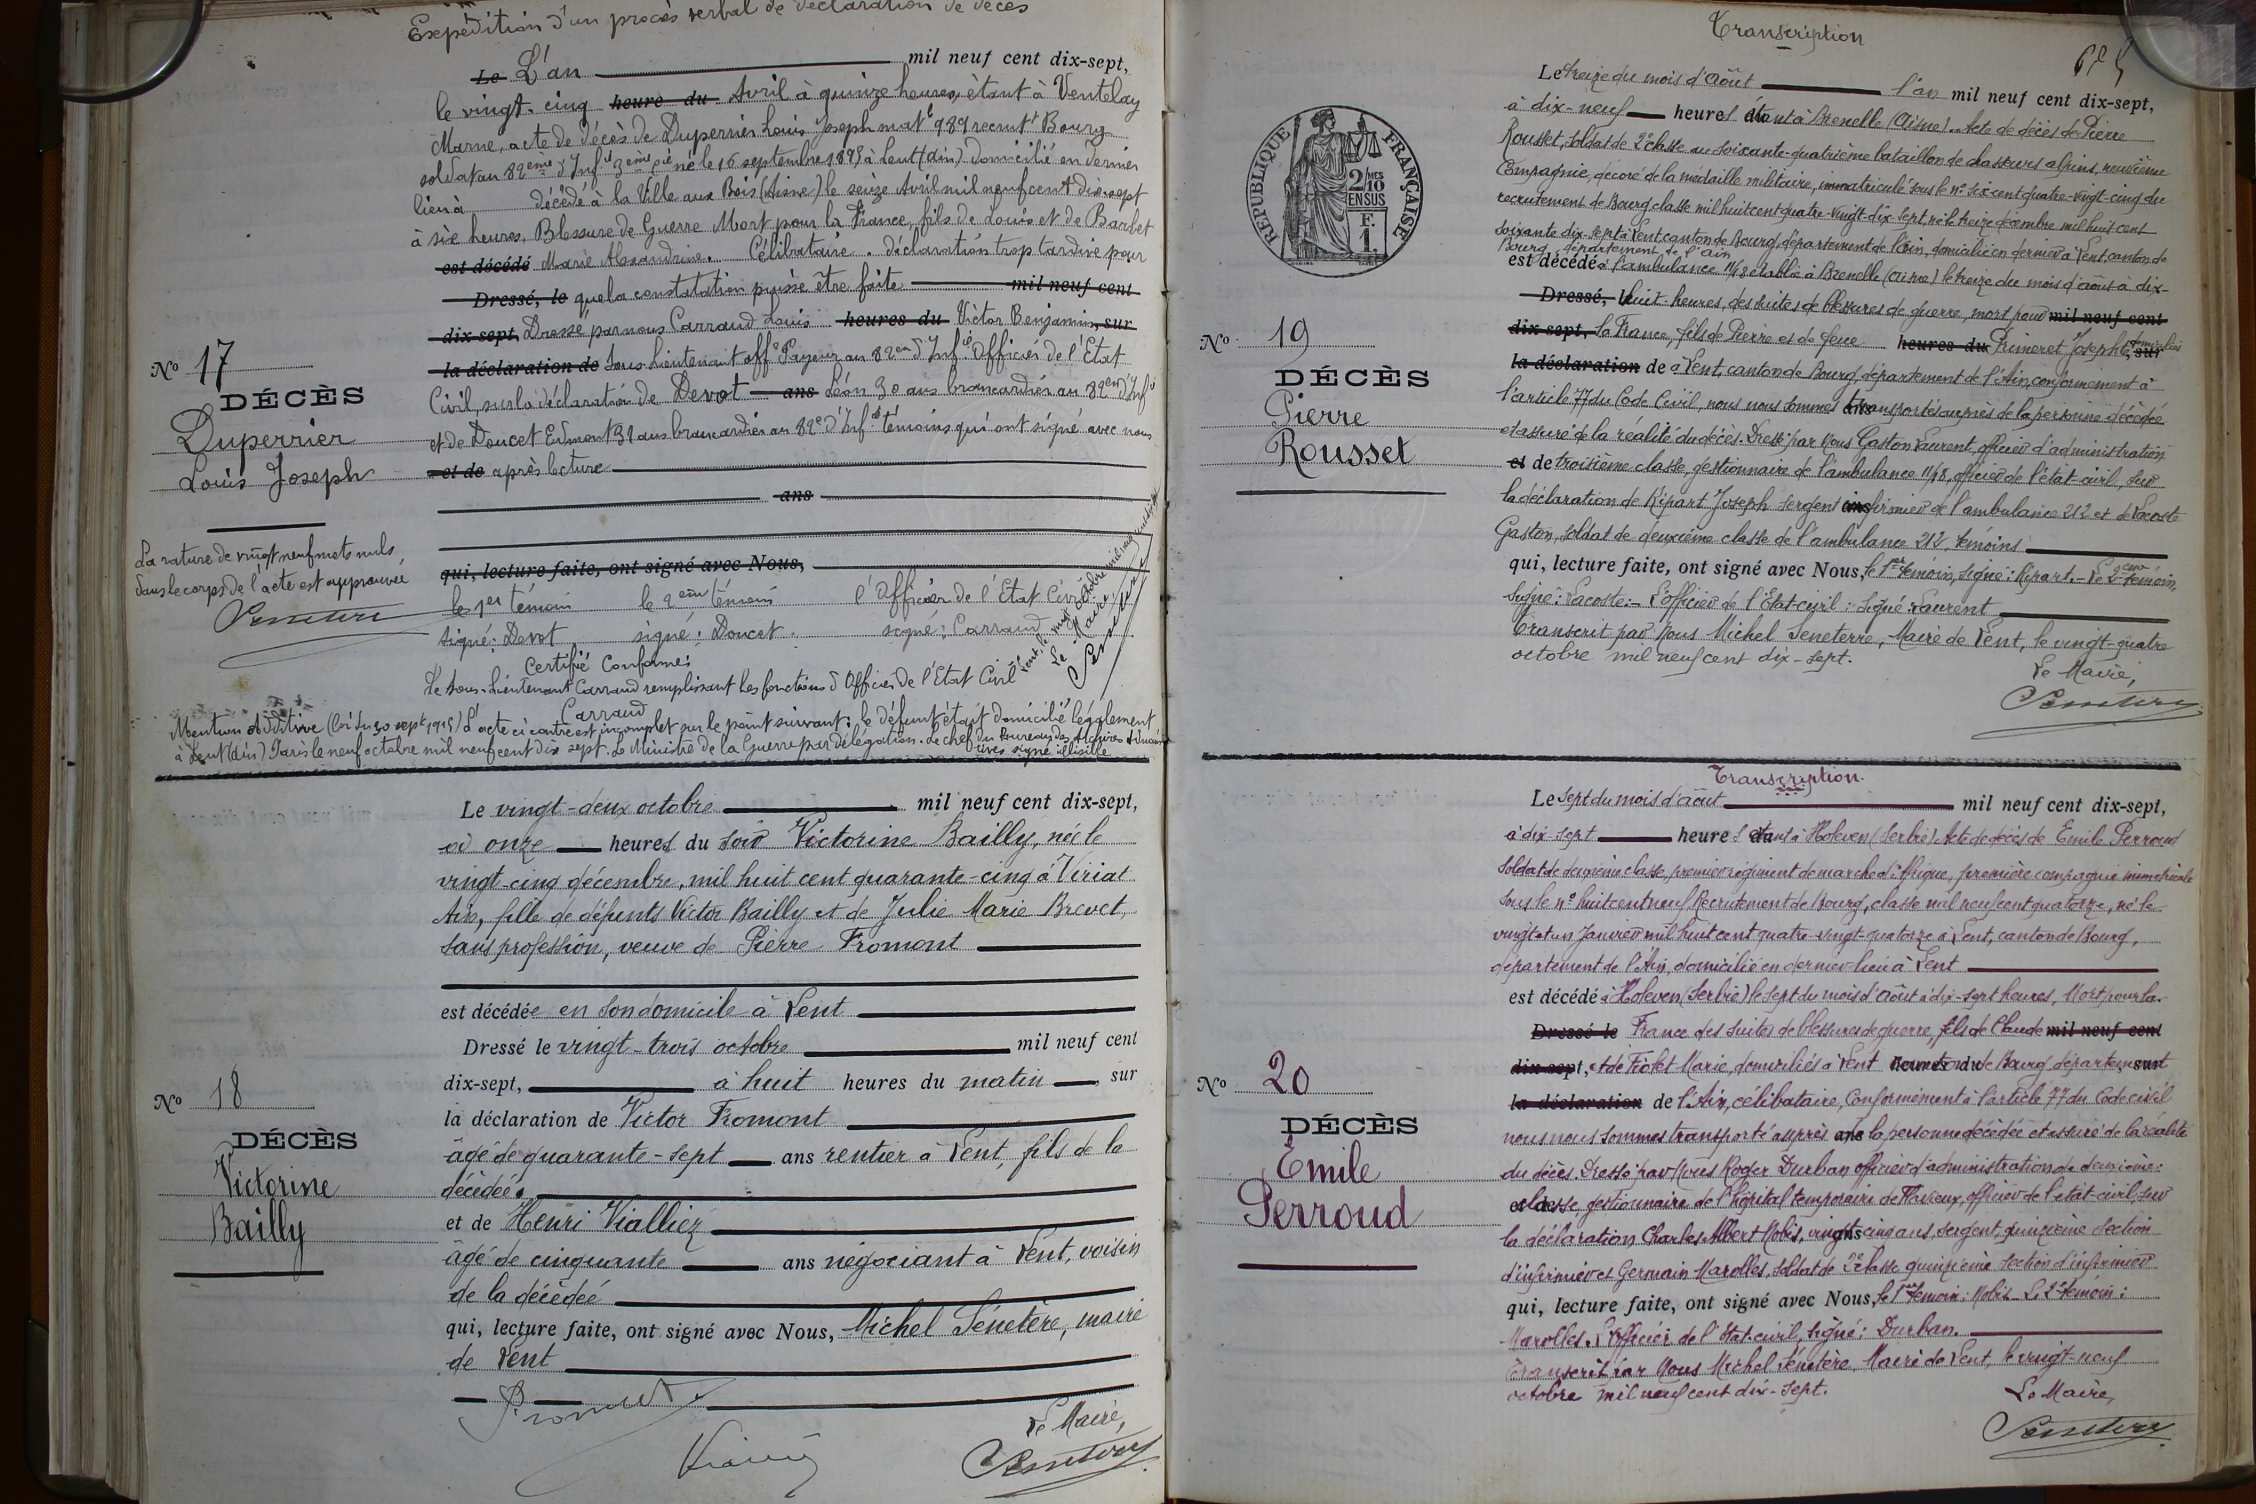 Expédition d'un procès verbal de déclaration de décès
Le L'an mil neuf cent dix-sept,
le vingt-cinq heure du Avril à quinze heures, étant à Ventelay
Marne, acte de décès de Duperrier Louis Joseph matle 989 recrutt Bourg
soldat au 82ème d'Infie 3ème Cie né le 16 septembre 1895 à Lent (Ain) domicilié en dernier
lieu à décédé à la Ville aux Bois (Aisne) le seize Avril mil neuf cent dix-sept
à six heures, Blessure de Guerre Mort pour la France, fils de Louis et de Barbet
est décédé Marie Alexandrine. Célibataire. déclaration trop tardive pour
Dressé, le que la constatation puisse être faite mil neuf cent
dix-sept, Dressé par nous Carraud Louis heures du Victor Benjamin, sur
la déclaration de Sous-lieutenant offr Payeur au 82em d'Infie Officier de l'Etat
Civil, sur la déclaration de Devot ans Léon 30 ans brancardier au 82em d'Infie
et de Doucet Edmont 32 ans brancardier au 82e d'Infie témoins qui ont signé avec nous
et de après lecture
ans
qui, lecture faite, ont signé avec Nous,
le 1er témoin le 2em témoin l'Officier de l'Etat Civil
signé: Devot signé: Doucet signé: Carraud
Certifié Conforme:
Le Sous-Lieutenant Carraud remplissant les fonctions d'Officier de l'Etat Civil
Carraud
Lent, le vingt octobre mil neuf cent dix-sept
Le Maire,
No 17
DÉCÈS
Duperrier
Louis Joseph
La rature de vingt neuf mots nuls
dans le corps de l'acte est approuvée
Mention Additive (loi du 30 sept. 1915) L'acte ci contre est incomplet sur le point suivant: le défunt était domicilié légalement
à Lent (Ain) Paris le neuf octobre mil neuf cent dix sept. Le Ministre de la Guerre par délégation. Le chef du Bureau des Archives Administratives signé illisible
Le vingt-deux octobre mil neuf cent dix-sept,
à onze heures du soir Victorine Bailly, née le
vingt-cinq décembre, mil huit cent quarante-cinq à Viriat
Ain, fille de défunts Victor Bailly et de Julie Marie Brevet,
sans profession, veuve de Pierre Fromont
est décédée en son domicile à Lent
Dressé le vingt-trois octobre mil neuf cent
dix-sept, à huit heures du matin, sur
la déclaration de Victor Fromont
âgé de quarante-sept ans rentier à Lent, fils de la
décédée.
et de Henri Vialliez
âgé de cinquante ans négociant à Lent, voisin
de la décédée
qui, lecture faite, ont signé avec Nous, Michel Sénetère, maire
de Lent
Le Maire,
No 18
DÉCÈS
Victorine
Bailly
Transcription
Le treize du mois d'août l'an mil neuf cent dix-sept,
à dix-neuf heures étant à Brenelle (Aisne). Acte de décès de Pierre
Rousset, soldat de 2e classe au soixante-quatrième bataillon de chasseurs alpins, neuvième
Compagnie, décoré de la médaille militaire, immatriculé sous le n° six cent quatre-vingt-cinq du
recrutement de Bourg classe mil huit cent quatre-vingt-dix sept, né le treize décembre mil huit cent
soixante dix-sept à Lent, canton de Bourg, département de l'Ain, domicilié en dernier à Lent, canton de
Bourg, département de l'Ain
est décédé à l'ambulance 11/18 établie à Brenelle (Aisne) le treize du mois d'août à dix-
Dressé, huit heures, des suites de blessures de guerre, mort pour mil neuf cent
dix sept, la France, fils de Pierre et de feue heures du Primeret Josephte, domiciliés sur
la déclaration de à Lent, canton de Bourg, département de l'Ain, conformément à
l'article 77 du Code Civil, nous nous sommes transportés auprès de la personne décédée
et assuré de la réalité du décès. Dressé par nous Gaston Laurent, officier d'administration
et de troisième classe, gestionnaire de l'ambulance 11/18, officier de l'état-civil, sur
la déclaration de Répart Joseph sergent infirmier de l'ambulance 212 et de Lacoste
Gaston, soldat de deuxième classe de l'ambulance 212, témoins
qui, lecture faite, ont signé avec Nous, le 1er témoin, signé: Répart. - Le 2em témoin,
signé: Lacoste: - L'officier de l'Etat-civil: signé: Laurent
Transcrit par Nous Michel Séneterre, Maire de Lent, le vingt-quatre
octobre mil neuf cent dix-sept.
Le Maire,
RÉPUBLIQUE FRANÇAISE
2/10 MES
EN SUS
1 F.
No 19
DÉCÈS
Pierre
Rousset
Transcription.
Le sept du mois d'août mil neuf cent dix-sept,
à dix-sept heures étant à Holeven (Serbie). Acte de décès de Emile Perroud
soldat de deuxième classe, premier régiment de marche d'Afrique, première compagnie immatriculé
sous le n° huit cent neuf Recrutement de Bourg, classe mil neuf cent quatorze, né le
vingt et un Janvier mil huit cent quatre-vingt-quatorze à Lent, canton de Bourg,
département de l'Ain, domicilié en dernier lieu à Lent
est décédé à Holeven (Serbie) le sept du mois d'août à dix-sept heures, Mort pour la
Dressé le France des suites de blessures de guerre, fils de Claude mil neuf cent
dix sept, et de Fiolet Marie, domiciliés à Lent canton de Bourg département
la déclaration de l'Ain, célibataire, Conformément à l'article 77 du Code civil
nous nous sommes transporté auprès de la personne décédée et assuré de la réalité
du décès. Dressé par Nous Roger Durban, officier d'administration de deuxième
classe, gestionnaire de l'hôpital temporaire de , officier de l'état-civil, sur
la déclaration Charles Albert Nobis, vingt cinq ans, sergent, quinzième section
d'infirmiers et Germain Marolles, soldat de 2e classe quinzième section d'infirmier
qui, lecture faite, ont signé avec Nous, le 1er témoin: Nobis. Le 2e témoin:
Marolles. L'officier de l'Etat-civil, signé: Durban.
Transcrit par Nous Michel Sénetère, Maire de Lent, le vingt-neuf
octobre mil neuf cent dix-sept.
Le Maire,
No 20
DÉCÈS
Emile
Perroud